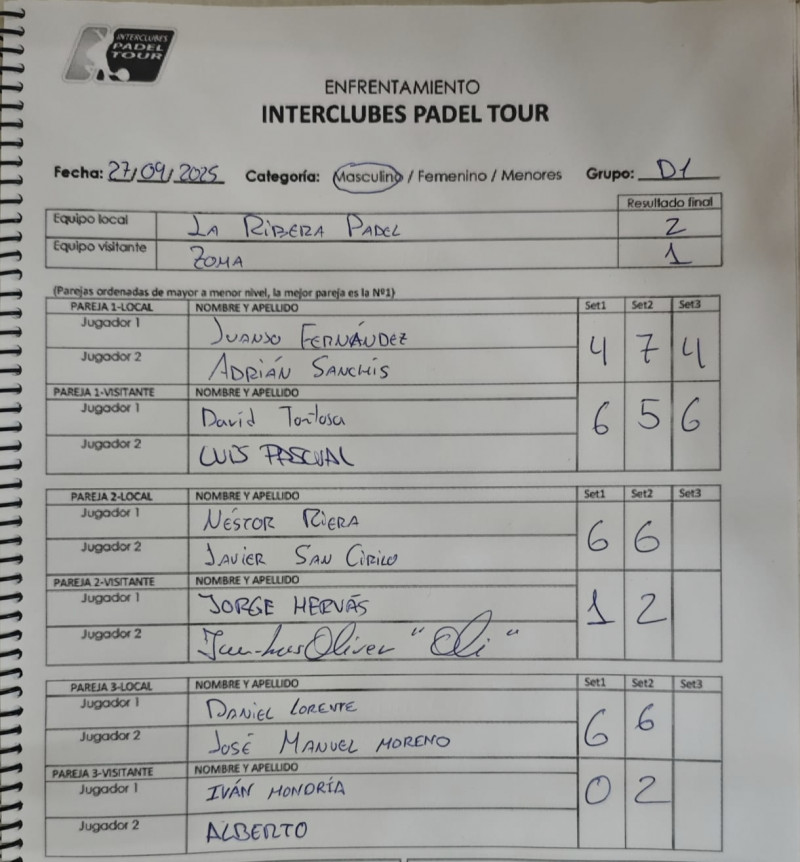 INTERCLUBES
PADEL
TOUR
ENFRENTAMIENTO
INTERCLUBES PADEL TOUR
Fecha: 27/09/2025 Categoría: Masculino / Femenino / Menores Grupo: D1
Resultado final
Equipo local LA RIBERA PADEL 2
Equipo visitante ZOMA 1
(Parejas ordenadas de mayor a menor nivel, la mejor pareja es la Nº1)
PAREJA 1-LOCAL NOMBRE Y APELLIDO Set1 Set2 Set3
Jugador 1 JUANJO FERNÁNDEZ
4 7 4
Jugador 2 ADRIÁN SANCHIS
PAREJA 1-VISITANTE NOMBRE Y APELLIDO
Jugador 1 David Tortosa
6 5 6
Jugador 2 LUIS PASCUAL
PAREJA 2-LOCAL NOMBRE Y APELLIDO Set1 Set2 Set3
Jugador 1 NÉSTOR RIERA
6 6
Jugador 2 JAVIER SAN CIRICO
PAREJA 2-VISITANTE NOMBRE Y APELLIDO
Jugador 1 JORGE HERVÁS
1 2
Jugador 2 Juan-Luis Oliver "Oli"
PAREJA 3-LOCAL NOMBRE Y APELLIDO Set1 Set2 Set3
Jugador 1 DANIEL LORENTE
6 6
Jugador 2 JOSÉ MANUEL MORENO
PAREJA 3-VISITANTE NOMBRE Y APELLIDO
Jugador 1 IVÁN MONDRÍA
0 2
Jugador 2 ALBERTO